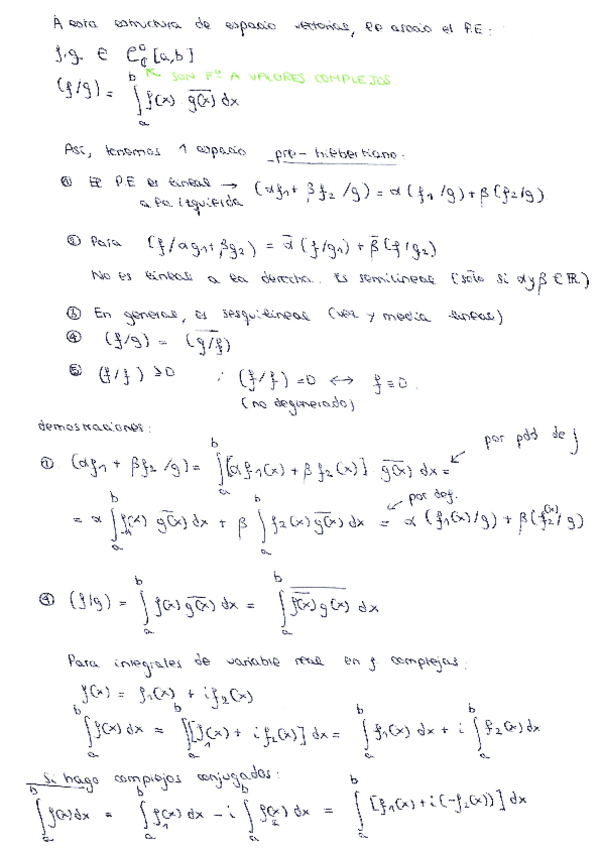 A esta estructura de espacio vectorial, le asocio el P.E:
f.g. ∈ C⁰_C [a,b]
↖ SON Fⁿ A VALORES COMPLEJOS
(f/g) = ∫ₐᵇ f(x) \overline{g(x)} dx
Así, tenemos 1 espacio pre-hilbertiano:
① El PE es lineal a la izquierda → (αf₁ + βf₂ /g) = α(f₁/g) + β(f₂/g)
② Para (f/αg₁+βg₂) = \overline{α}(f/g₁) + \overline{β}(f/g₂)
No es lineal a la derecha. Es semilineal (sólo si α y β ∈ ℝ)
③ En general, es sesquilineal (vez y media lineal)
④ (f/g) = \overline{(g/f)}
⑤ (f/f) ≥ 0 ; (f/f) = 0 ↔ f = 0.
(no degenerado)
demostraciones:
① (αf₁ + βf₂ /g) = ∫ₐᵇ [αf₁(x) + βf₂(x)] \overline{g(x)} dx = ↙ por pdd de ∫
= α ∫ₐᵇ f₁(x) \overline{g(x)} dx + β ∫ₐᵇ f₂(x) \overline{g(x)} dx = ↙ por def. α(f₁(x)/g) + β(f₂(x)/g)
④ (f/g) = ∫ₐᵇ f(x) \overline{g(x)} dx = ∫ₐᵇ \overline{\overline{f(x)} g(x)} dx
Para integrales de variable real en f complejas:
f(x) = f₁(x) + i f₂(x)
∫ₐᵇ f(x) dx = ∫ₐᵇ [f₁(x) + i f₂(x)] dx = ∫ₐᵇ f₁(x) dx + i ∫ₐᵇ f₂(x) dx
Si hago complejos conjugados:
\overline{∫ₐᵇ f(x) dx} = ∫ₐᵇ f₁(x) dx - i ∫ₐᵇ f₂(x) dx = ∫ₐᵇ [f₁(x) + i(-f₂(x))] dx